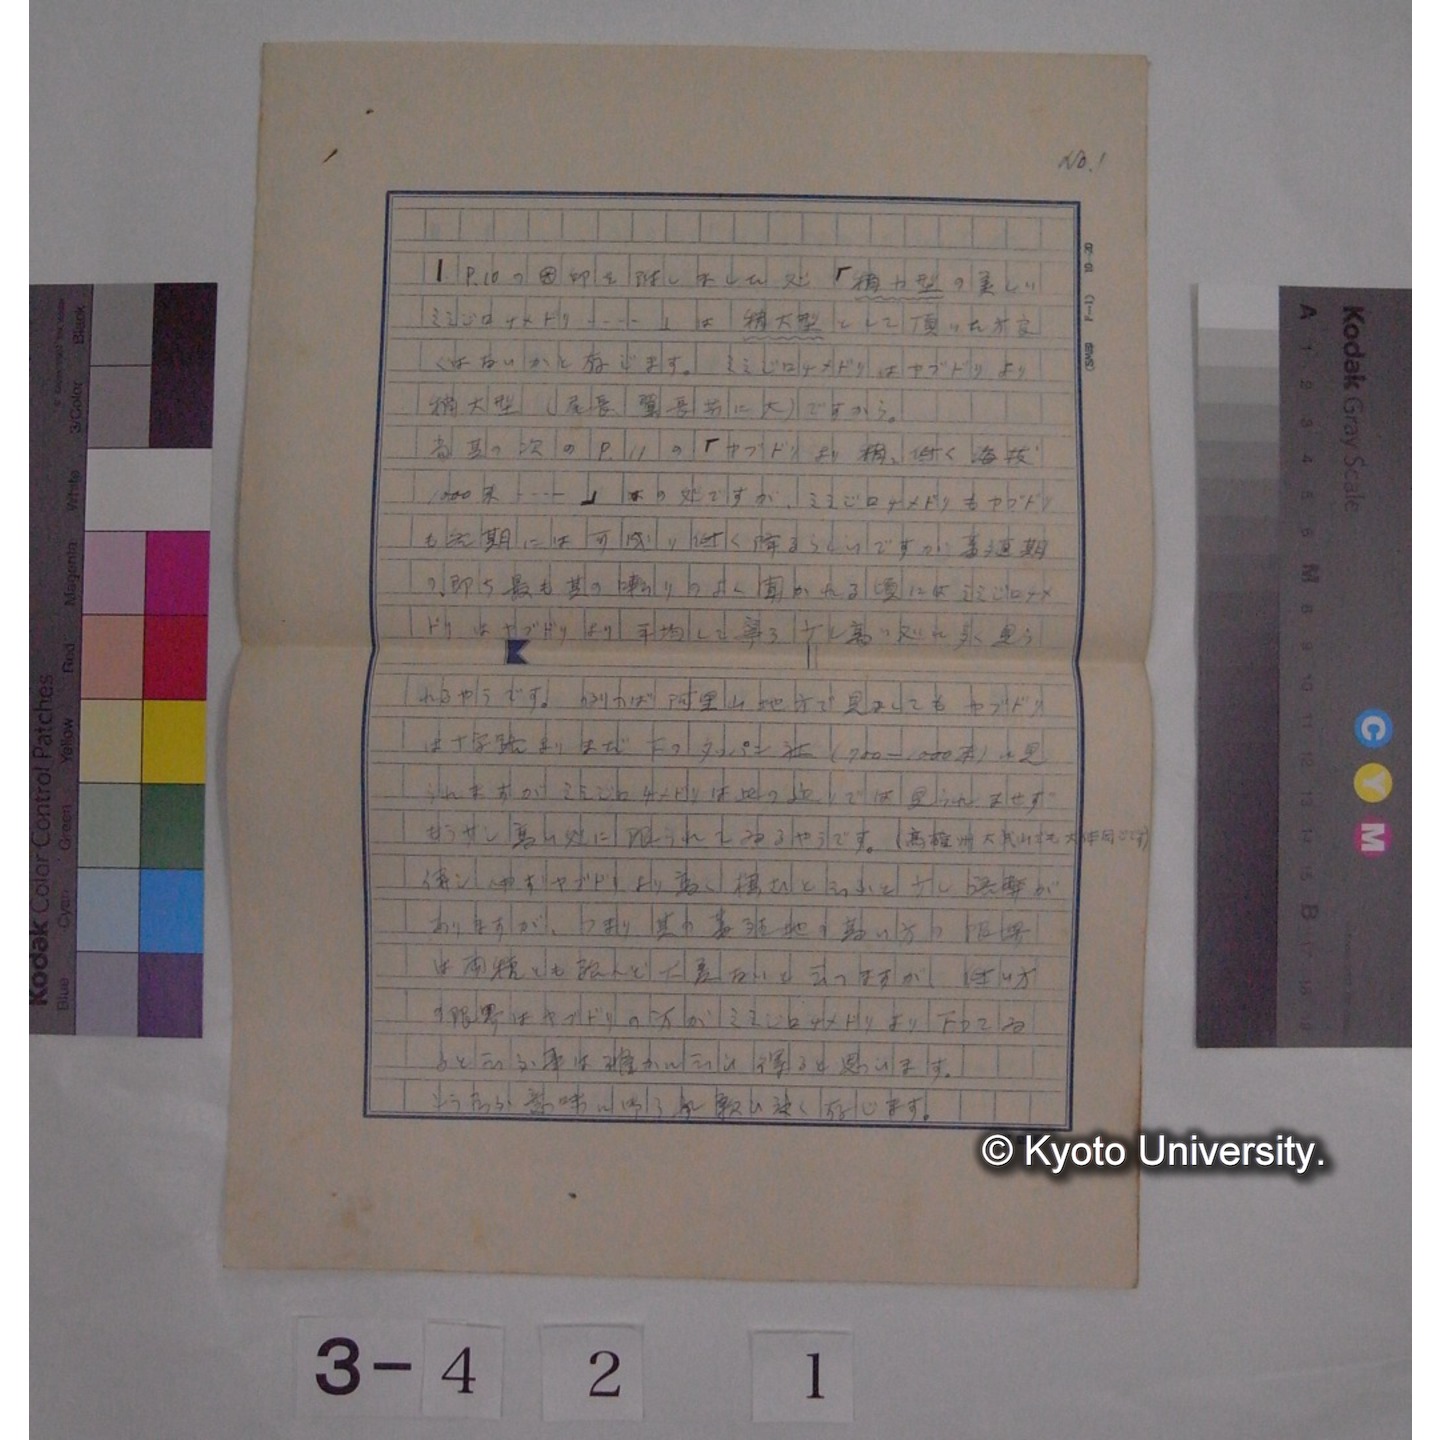 No.1
1. P.10の
「稍小型の美しい
ミミジロチメドリ……」は 稍大型として頂いた方が
くはないかと存じます。 ミミジロチメドリはヤブドリより
稍大型 (尾長 翼長共に大)ですから。
尚其の次のP.11の「ヤブドリより稍、低く海抜
1000米……」 の処ですが、ミミジロチメドリもヤブドリ
も 期には可成り低く降るらしいですが 蕃殖期
の即ち最も其の囀りのよく聞かれる頃にはミミジロチメ
ドリはヤブドリより平均して寧ろ少し高い処に見思う
れるやうです。例へば阿里山地方で見ましてもヤブドリ
は十字路よりまだ下のタッパン社(700—1000米)に見
られますがミミジロチメドリは此の辺りでは見られませず
もう少し高い処に限られてゐるやうです。(高雄州大武山でも大体同じです)
ヤブドリより高く棲むと云ふと少し語弊が
ありますが、つまり其の蕃殖地の高い方の限界
は両種とも殆んど大差ないと云へますが、低い方
の限界はヤブドリの方がミミジロチメドリより下つてゐ
ると云ふ事は確かに云ひ得ると思ひます。
存じます。
Kodak Color Control Patches
Blue
Cyan
Green
Yellow
Red
Magenta
White
3/Color
Black
Kodak Gray Scale
A 1 2 3 4 5 6 M 8 9 10 11 12 13 14 15 B 17 18 19
C
Y
M
© Kyoto University.
3-4 2 1